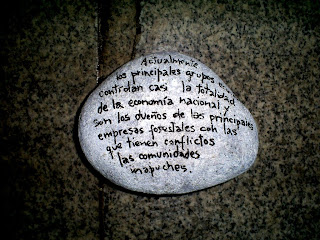 Actualmente
los principales grupos
controlan casi la totalidad
de la economía nacional y
son los dueños de las principales
empresas forestales con las
que tienen conflictos
las comunidades
mapuches.